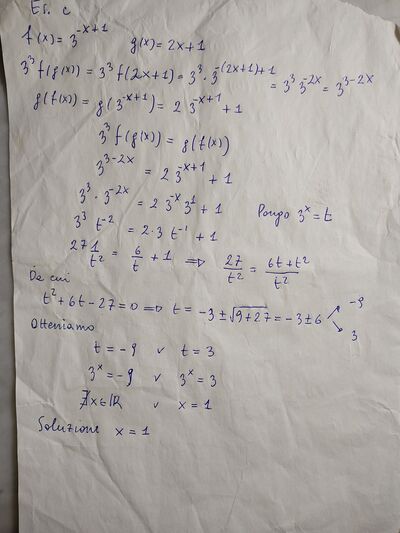 Es. c
f(x) = 3^{-x+1} g(x) = 2x+1
3^3 f(g(x)) = 3^3 f(2x+1) = 3^3 · 3^{-(2x+1)+1} = 3^3 3^{-2x} = 3^{3-2x}
g(f(x)) = g(3^{-x+1}) = 2 3^{-x+1} + 1
3^3 f(g(x)) = g(f(x))
3^{3-2x} = 2 3^{-x+1} + 1
3^3 · 3^{-2x} = 2 3^{-x} 3^1 + 1 Pongo 3^x = t
3^3 t^{-2} = 2·3 t^{-1} + 1
27 1/t^2 = 6/t + 1 ⇒ 27/t^2 = (6t+t^2)/t^2
Da cui
t^2 + 6t - 27 = 0 ⇒ t = -3 ± √(9+27) = -3 ± 6 ↗ -9 ↘ 3
Otteniamo
t = -9 ∨ t = 3
3^x = -9 ∨ 3^x = 3
∄ x ∈ ℝ ∨ x = 1
Soluzione x = 1